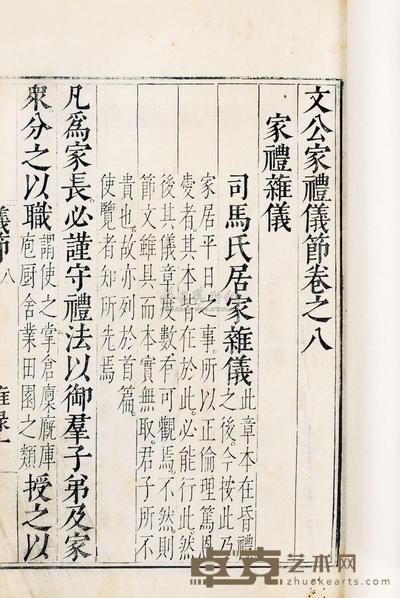 文公家禮儀節卷之八
家禮雜儀
司馬氏居家雜儀 此章本在昏禮之後今按此乃
家居平日之事所以正倫理篤恩
愛者其本皆在於此必能行此然
後其儀章度數有可觀焉不然則
節文雖具而本實無取君子所不
貴也故亦列於首篇
使覽者知所先焉
凡爲家長必謹守禮法以御羣子弟及家
衆分之以職 謂使之掌倉廩廐庫庖厨舍業田園之類 授之以
儀節 八
卓克艺术网
zhuokearts.com